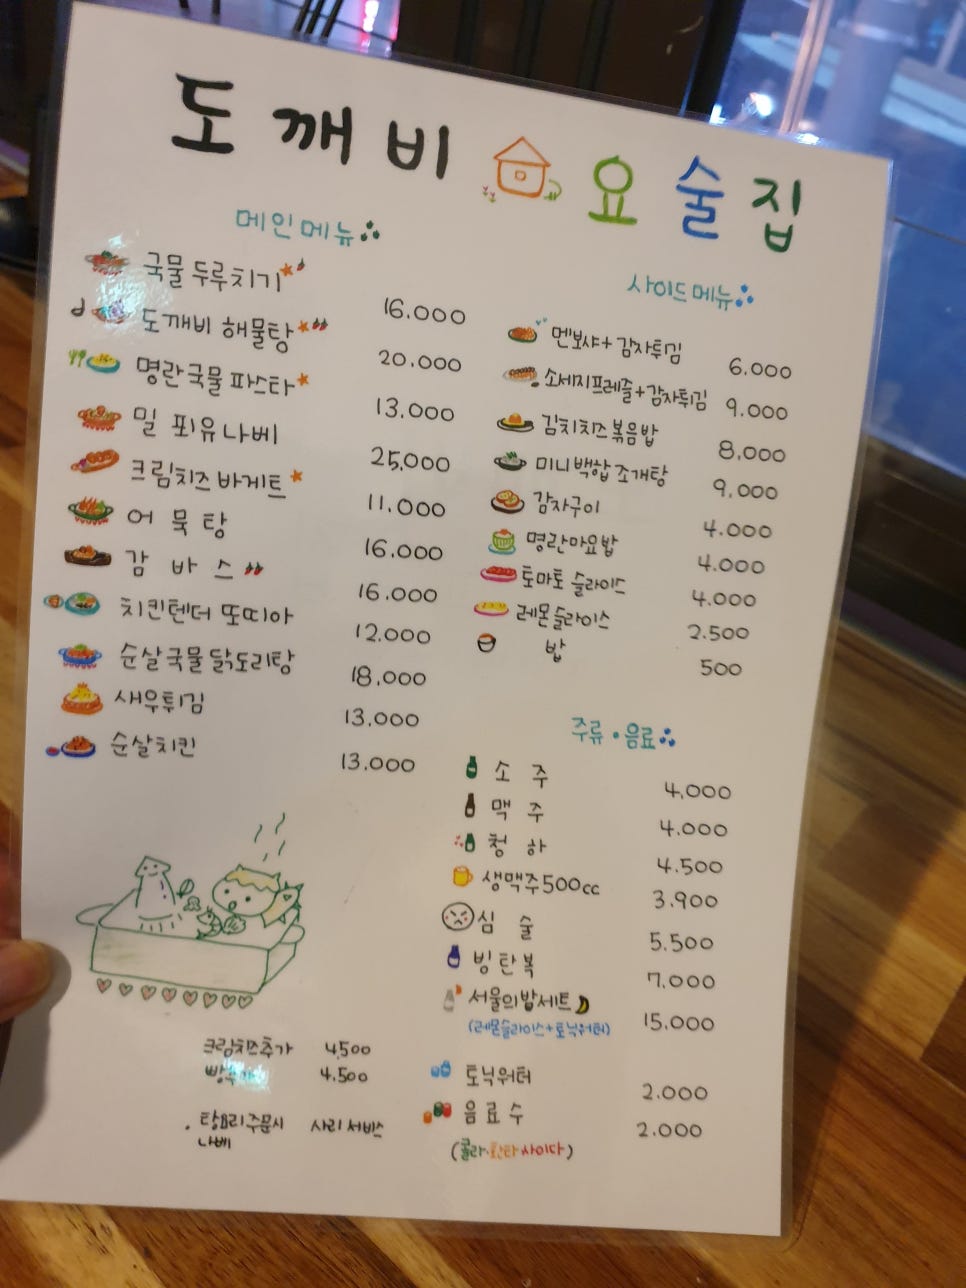 도깨비 요술집
메인메뉴
국물 두루치기 16.000
도깨비 해물탕 20.000
명란국물 파스타 13.000
밀푀유나베 25,000
크림치즈 바게트 11.000
어묵탕 16.000
감바스 16.000
치킨텐더 또띠아 12,000
순살국물 닭도리탕 18,000
새우튀김 13,000
순살치킨 13.000
크림치즈추가 4,500
4.500
탕요리주문시 사리 서비스
나베
사이드메뉴
멘보샤+감자튀김 6.000
소세지프레즐+감자튀김 9.000
김치치즈볶음밥 8,000
미니백합조개탕 9,000
감자구이 4.000
명란마요밥 4.000
토마토 슬라이스 4.000
레몬슬라이스 2.500
밥 500
주류·음료
소주 4,000
맥주 4.000
청하 4.500
생맥주500cc 3.900
심술 5.500
빙탄복 7,000
서울의밤세트 15.000
(레몬슬라이스+토닉워터)
토닉워터 2.000
음료수 2.000
(콜라·환타·사이다)